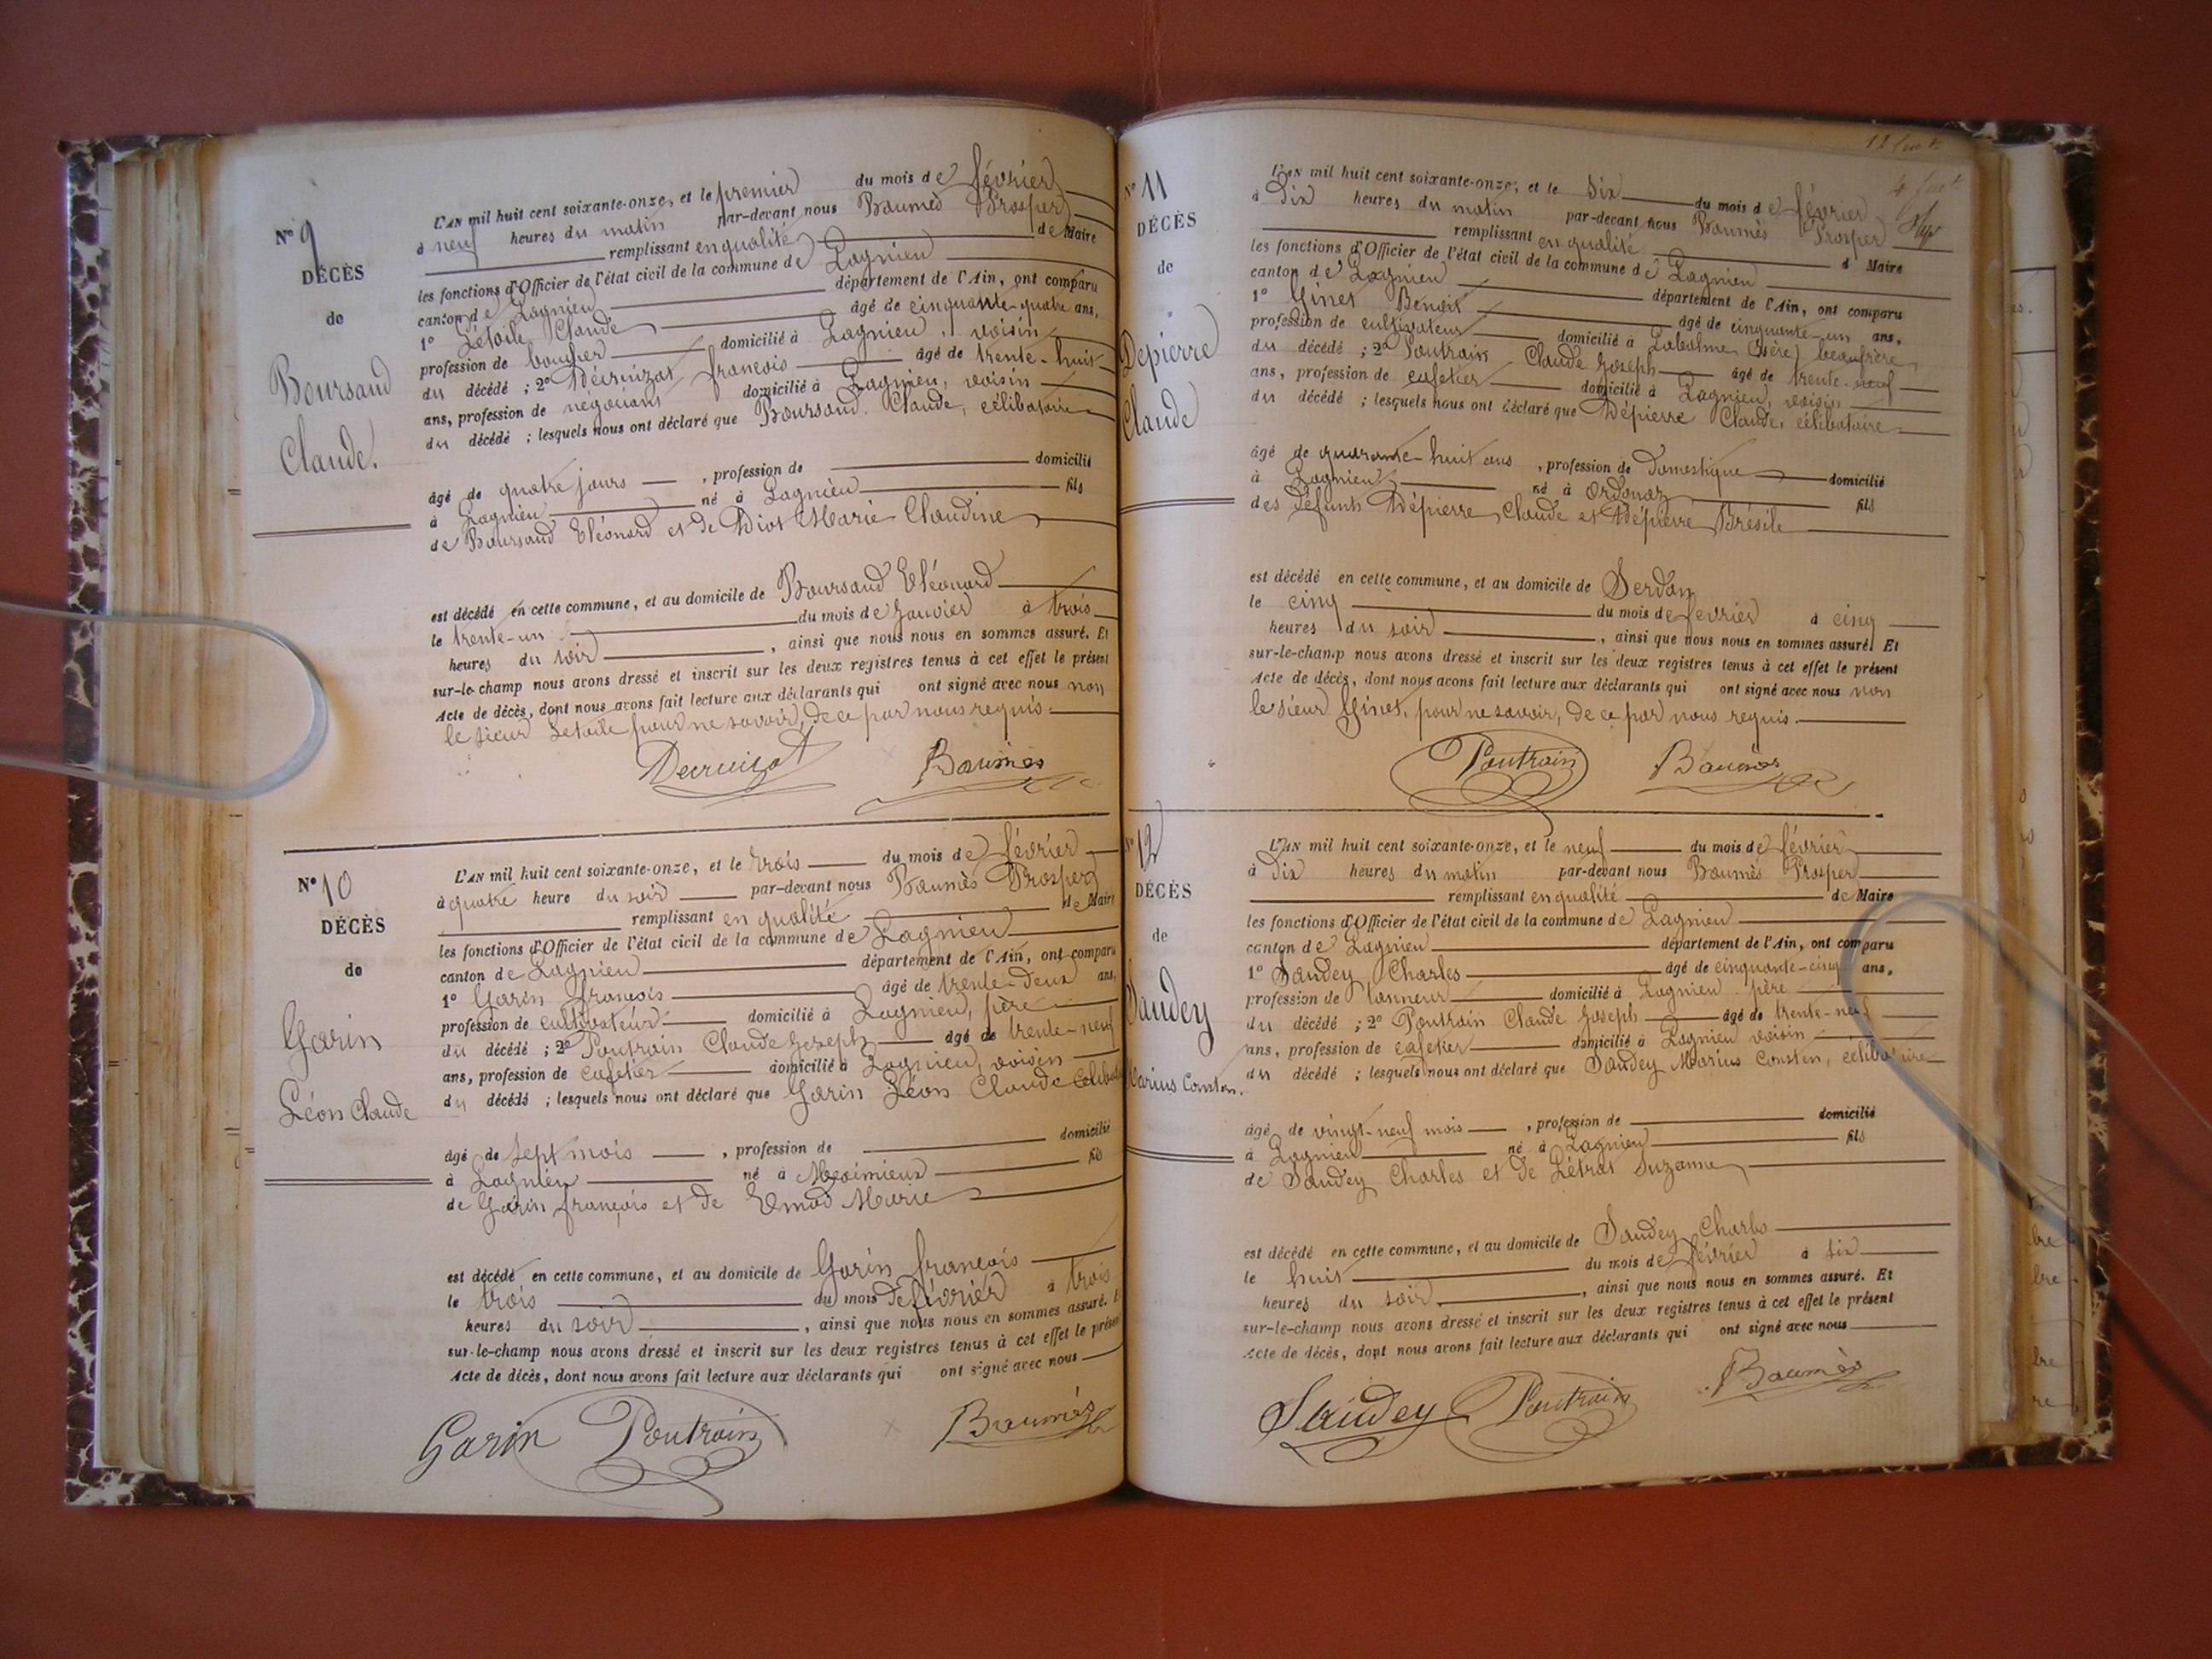 N° 9
DÉCÈS
de
Boursaud
Claude.
L'AN mil huit cent soixante-onze, et le premier du mois de février
à neuf heures du matin par-devant nous Baumès Prosper
remplissant en qualité de Maire
les fonctions d'Officier de l'état civil de la commune de Lagnieu
canton de Lagnieu département de l'Ain, ont comparu
1° Létoile Claude âgé de cinquante-quatre ans,
profession de boucher domicilié à Lagnieu, voisin
du décédé ; 2° Décruizat françois âgé de trente-huit
ans, profession de négociant domicilié à Lagnieu, voisin
du décédé ; lesquels nous ont déclaré que Boursaud Claude, célibataire
âgé de quatre jours , profession de domicilié
à Lagnieu né à Lagnieu fils
de Boursaud Eléonord et de Diot Marie Claudine
est décédé en cette commune, et au domicile de Boursaud Eléonard
le trente-un du mois de Janvier à trois
heures du soir , ainsi que nous nous en sommes assuré. Et
sur-le-champ nous avons dressé et inscrit sur les deux registres tenus à cet effet le présent
Acte de décès, dont nous avons fait lecture aux déclarants qui ont signé avec nous non
le sieur Letoile pour ne savoir, de ce par nous requis.
Decruizat Baumès
N° 10
DÉCÈS
de
Garin
Léon Claude
L'AN mil huit cent soixante-onze, et le trois du mois de février
à quatre heure du soir par-devant nous Baumès Prosper
remplissant en qualité de Maire
les fonctions d'Officier de l'état civil de la commune de Lagnieu
canton de Lagnieu département de l'Ain, ont comparu
1° Garin françois âgé de trente-deux ans,
profession de cultivateur domicilié à Lagnieu, père
du décédé ; 2° Poutrain Claude Joseph âgé de trente-neuf
ans, profession de cafetier domicilié à Lagnieu, voisin
du décédé ; lesquels nous ont déclaré que Garin Léon Claude
âgé de sept mois , profession de domicilié
à Lagnieu né à Meximieux fils
de Garin françois et de Marie
est décédé en cette commune, et au domicile de Garin françois
le trois du mois de février à trois
heures du soir , ainsi que nous nous en sommes assuré. Et
sur-le-champ nous avons dressé et inscrit sur les deux registres tenus à cet effet le présent
Acte de décès, dont nous avons fait lecture aux déclarants qui ont signé avec nous
Garin Poutrain Baumès
N° 11
DÉCÈS
de
Depierre
Claude
L'AN mil huit cent soixante-onze, et le Six du mois de février
à Dix heures du matin par-devant nous Baumès Prosper
remplissant en qualité d Maire
les fonctions d'Officier de l'état civil de la commune de Lagnieu
canton de Lagnieu département de l'Ain, ont comparu
1° Ginet Benoit âgé de cinquante-un ans,
profession de cultivateur domicilié à Labalme (Isère) beaufrère
du décédé ; 2° Poutrain Claude Joseph âgé de trente-neuf
ans, profession de cafetier domicilié à Lagnieu, voisin
du décédé ; lesquels nous ont déclaré que Dépierre Claude, célibataire
âgé de quarante-huit ans , profession de Domestique domicilié
à Lagnieu né à Ordonaz fils
des Défunts Dépierre Claude et Dépierre
est décédé en cette commune, et au domicile de Serdon
le cinq du mois de fevrier à cinq
heures du soir , ainsi que nous nous en sommes assuré. Et
sur-le-champ nous avons dressé et inscrit sur les deux registres tenus à cet effet le présent
Acte de décès, dont nous avons fait lecture aux déclarants qui ont signé avec nous non
le sieur Ginet, pour ne savoir, de ce par nous requis.
Poutrain Baumès
N° 12
DÉCÈS
de
Saudey
Marius Conston.
L'AN mil huit cent soixante-onze, et le neuf du mois de février
à Dix heures du matin par-devant nous Baumès Prosper
remplissant en qualité de Maire
les fonctions d'Officier de l'état civil de la commune de Lagnieu
canton de Lagnieu département de l'Ain, ont comparu
1° Saudey Charles âgé de cinquante-cinq ans,
profession de tanneur domicilié à Lagnieu père
du décédé ; 2° Poutrain Claude Joseph âgé de trente-neuf
ans, profession de cafetier domicilié à Lagnieu voisin
du décédé ; lesquels nous ont déclaré que Saudey Marius Consten, célibataire
âgé de vingt-neuf mois , profession de domicilié
à Lagnieu né à Lagnieu fils
de Saudey Charles et de Létrat Suzanne
est décédé en cette commune, et au domicile de Saudey Charles
le huit du mois de février à six
heures du soir , ainsi que nous nous en sommes assuré. Et
sur-le-champ nous avons dressé et inscrit sur les deux registres tenus à cet effet le présent
Acte de décès, dont nous avons fait lecture aux déclarants qui ont signé avec nous
Saudey Poutrain Baumès